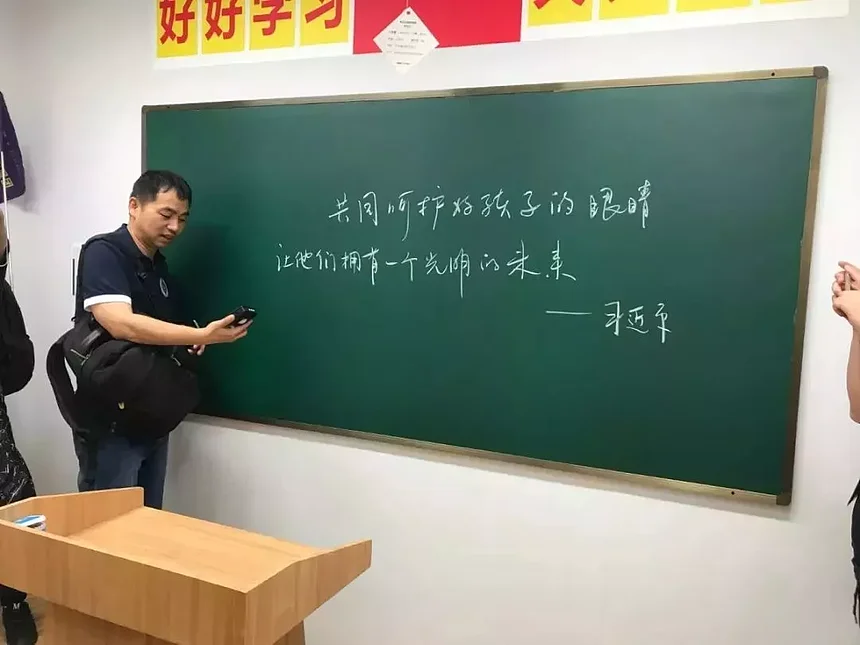 好好学习
共同呵护好孩子的眼睛
让他们拥有一个光明的未来
——习近平